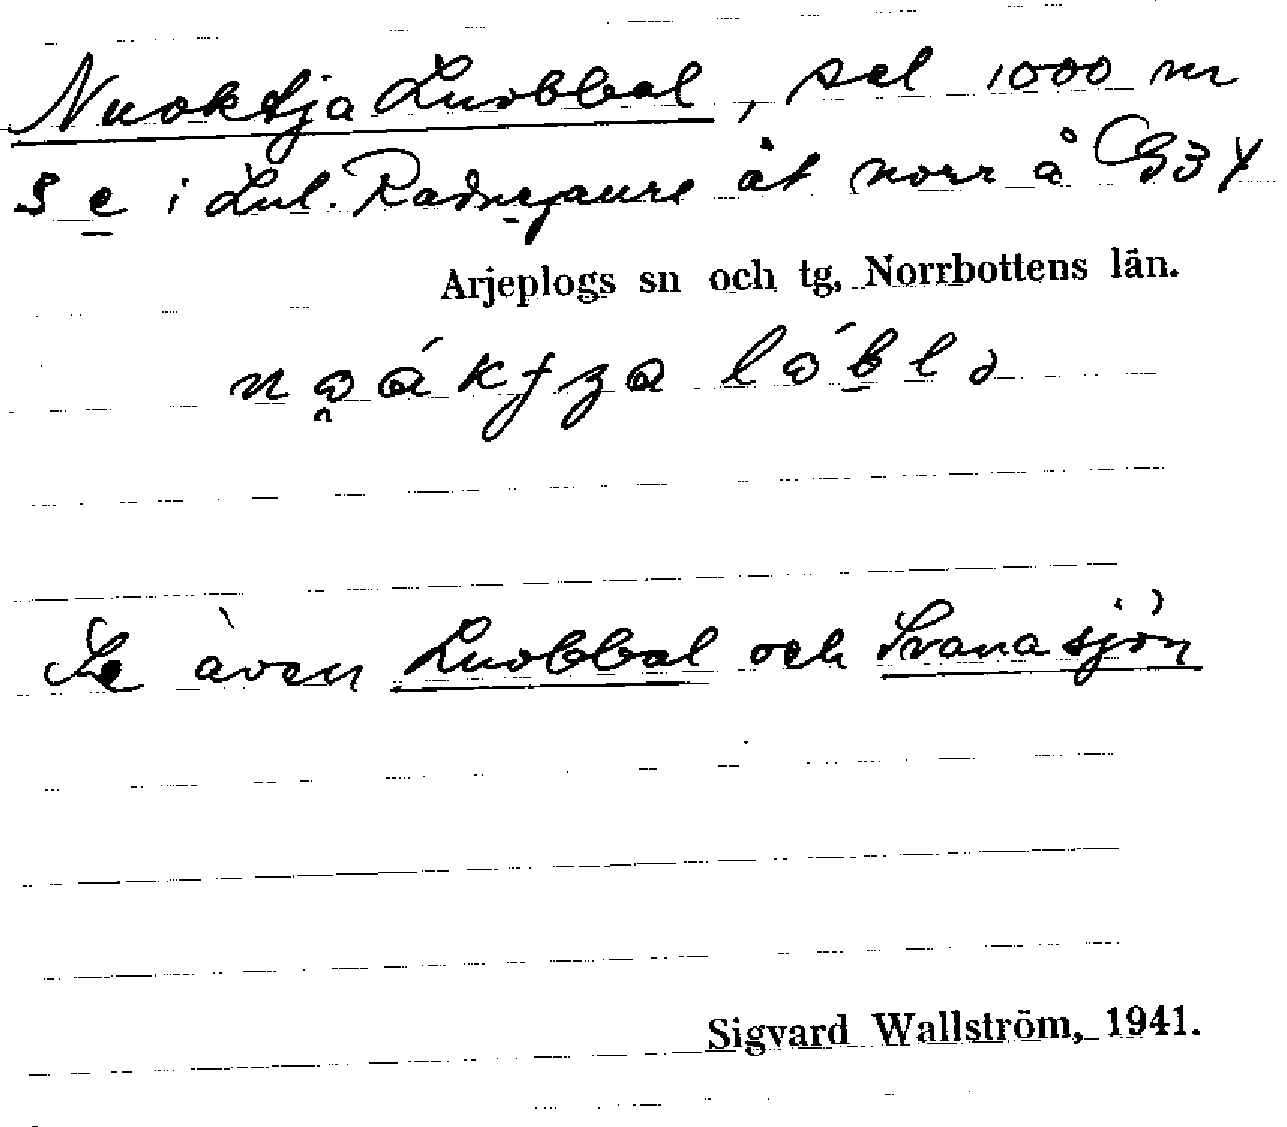 Nuoktja Luobbal, sel 1000 m
S e i Lul. Radnejaure åt norr å G34
Arjeplogs sn och tg, Norrbottens län.
Se även Luobbal och Svanasjön
Sigvard Wallström, 1941.